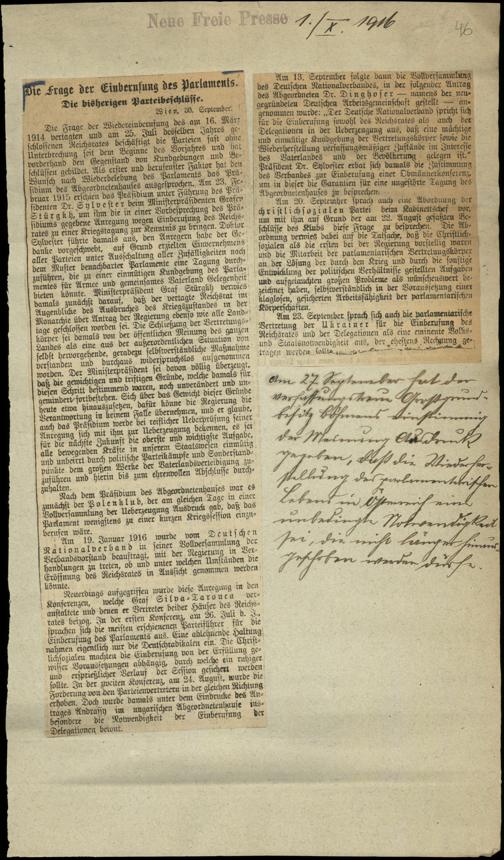 Neue Freie Presse 1./X. 1916
46
Die Frage der Einberufung des Parlaments.
Die bisherigen Parteibeschlüsse.
Wien, 30. September.
Die Frage der Wiedereinberufung des am 16. März
1914 vertagten und am 25. Juli desselben Jahres ge-
schlossenen Reichsrates beschäftigt die Parteien seit ohne
Unterbrechung seit dem Beginne des Vorjahres und hat
vorherrschend den Gegenstand von Kundgebungen und Be-
schlüssen gebildet. Als erster und berufenster Faktor hat den
Wunsch nach Wiederbelebung des Parlaments das Prä-
sidium des Abgeordnetenhauses ausgesprochen. Am 23. Fe-
bruar 1915 erschien das Präsidium unter Führung des Prä-
sidenten Dr. Sylvester beim Ministerpräsidenten Grafen
Stürgkh, um ihm die in einer Vorbesprechung des Prä-
sidiums gegebene Anregung wegen Einberufung des Reichs-
rates zu einer Kriegstagung zur Kenntnis zu bringen. Doktor
Sylvester führte damals aus, den Anregern habe der Ge-
danke vorgeschwebt, auf Grund erzielten Einvernehmens
aller Parteien unter Ausschaltung aller Zufälligkeiten nach
dem Muster benachbarter Parlamente eine Tagung durch-
zuführen, die zu einer einmütigen Kundgebung des Parla-
ments für Armee und gemeinsames Vaterland Gelegenheit
bieten könnte. Ministerpräsident Graf Stürgkh verwies
damals zunächst darauf, daß der vertagte Reichsrat im
Augenblicke des Ausbruches des Kriegszustandes in der
Monarchie über Antrag der Regierung ebenso wie alle Land-
tage geschlossen worden sei. Die Schließung der Vertretungs-
körper ist damals von der öffentlichen Meinung des ganzen
Landes als eine aus der außerordentlichen Situation von
selbst hervorgehende, geradezu selbstverständliche Maßnahme
verstanden und durchaus widerspruchslos aufgenommen
worden. Der Ministerpräsident sei davon völlig überzeugt,
daß die gewichtigen und triftigen Gründe, welche damals für
diesen Schritt bestimmend waren, noch unverändert und un-
gemindert fortbestehen. Sich über das Gewicht dieser Gründe
heute etwa hinauszusetzen, dafür könne die Regierung die
Verantwortung in keinem Falle übernehmen, und er glaube,
auch das Präsidium werde bei reiflicher Ueberprüfung seiner
Anregung sich mit ihm zur Ueberzeugung bekennen, es sei
für die nächste Zukunft die oberste und wichtigste Aufgabe,
alle bewegenden Kräfte in unserem Staatswesen einmütig
und unbeirrt durch politische Parteikämpfe und Sonderstand-
punkte dem großen Werke der Vaterlandsverteidigung zu-
zuführen und hierin bis zum ehrenvollen Abschlusse durch-
zuhalten.
Nach dem Präsidium des Abgeordnetenhauses war es
zunächst der Polenklub, der am gleichen Tage in einer
Vollversammlung der Ueberzeugung Ausdruck gab, daß das
Parlament wenigstens zu einer kurzen Kriegssession einzu-
berufen wäre.
Am 19. Januar 1916 wurde vom Deutschen
Nationalverband in seiner Vollversammlung der
Verbandsvorstand beauftragt, mit der Regierung in Ver-
handlungen zu treten, ob und unter welchen Umständen die
Eröffnung des Reichsrates in Aussicht genommen werden
könnte.
Neuerdings aufgegriffen wurde diese Anregung in den
Konferenzen, welche Graf Silva-Tarouca ver-
anstaltete und denen er Vertreter beider Häuser des Reichs-
rates beizog. In der ersten Konferenz, am 26. Juli d. J.,
sprachen sich die meisten erschienenen Parteiführer für die
Einberufung des Parlaments aus. Eine ablehnende Haltung
nahmen eigentlich nur die Deutschradikalen ein. Die Christ-
lichsozialen machten die Einberufung von der Erfüllung ge-
wisser Voraussetzungen abhängig, durch welche ein ruhiger
und ersprießlicher Verlauf der Session gesichert werden
sollte. In der zweiten Konferenz, am 24. August, wurde die
Forderung von den Parteienvertretern in der gleichen Richtung
erhoben. Doch wurde damals unter dem Eindrucke des An-
trages Andrassy im ungarischen Abgeordnetenhause ins-
besondere die Notwendigkeit der Einberufung der
Delegationen betont.
Am 13. September folgte dann die Vollversammlung
des Deutschen Nationalverbandes, in der folgender Antrag
des Abgeordneten Dr. Dinghofer — namens der neu-
gegründeten Deutschen Arbeitsgemeinschaft gestellt — an-
genommen wurde: „Der Deutsche Nationalverband spricht sich
für die Einberufung sowohl des Reichsrates als auch der
Delegationen in der Ueberzeugung aus, daß eine mächtige
und einmütige Kundgebung der Vertretungskörper sowie die
Wiederherstellung verfassungsmäßiger Zustände im Interesse
des Vaterlandes und der Bevölkerung gelegen ist.“
Präsident Dr. Sylvester erbat sich damals die Zustimmung
des Verbandes zur Einberufung einer Obmännerkonferenz,
um in dieser die Garantien für eine ungestörte Tagung des
Abgeordnetenhauses zu besprechen.
Am 20. September sprach auch eine Abordnung der
christlichsozialen Partei beim Kabinettschef vor,
um mit ihm auf Grund der am 22. August gefaßten Be-
schlüsse des Klubs diese Frage zu besprechen. Die Ab-
ordnung verwies dabei auf die Tatsache, daß die Christlich-
sozialen als die ersten bei der Regierung vorstellig waren
und die Mitarbeit der parlamentarischen Vertretungskörper
an der Lösung der durch den Krieg und durch die sonstige
Entwicklung der politischen Verhältnisse gestellten Aufgaben
und aufgetauchten großen Probleme als wünschenswert be-
zeichnet haben, selbstverständlich in der Voraussetzung einer
klaglosen, gesicherten Arbeitsfähigkeit der parlamentarischen
Körperschaften.
Am 23. September sprach sich auch die parlamentarische
Vertretung der Ukrainer für die Einberufung des
Reichsrates und der Delegationen als eine eminente Volks-
und Staatsnotwendigkeit aus, der ehestens Rechnung ge-
tragen werden sollte
Am 27. September hat der
verfassungstreue Großgrund-
besitz Böhmens einstimmig
der Meinung Ausdruck
gegeben, daß die Wiederher-
stellung des parlamentarischen
Lebens in Österreich eine
unbedingte Notwendigkeit
sei, die nicht länger hinaus-
geschoben werden dürfe.